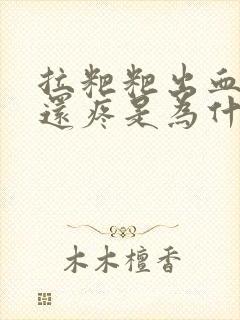 拉粑粑出血
還疼是為什
木木檀香